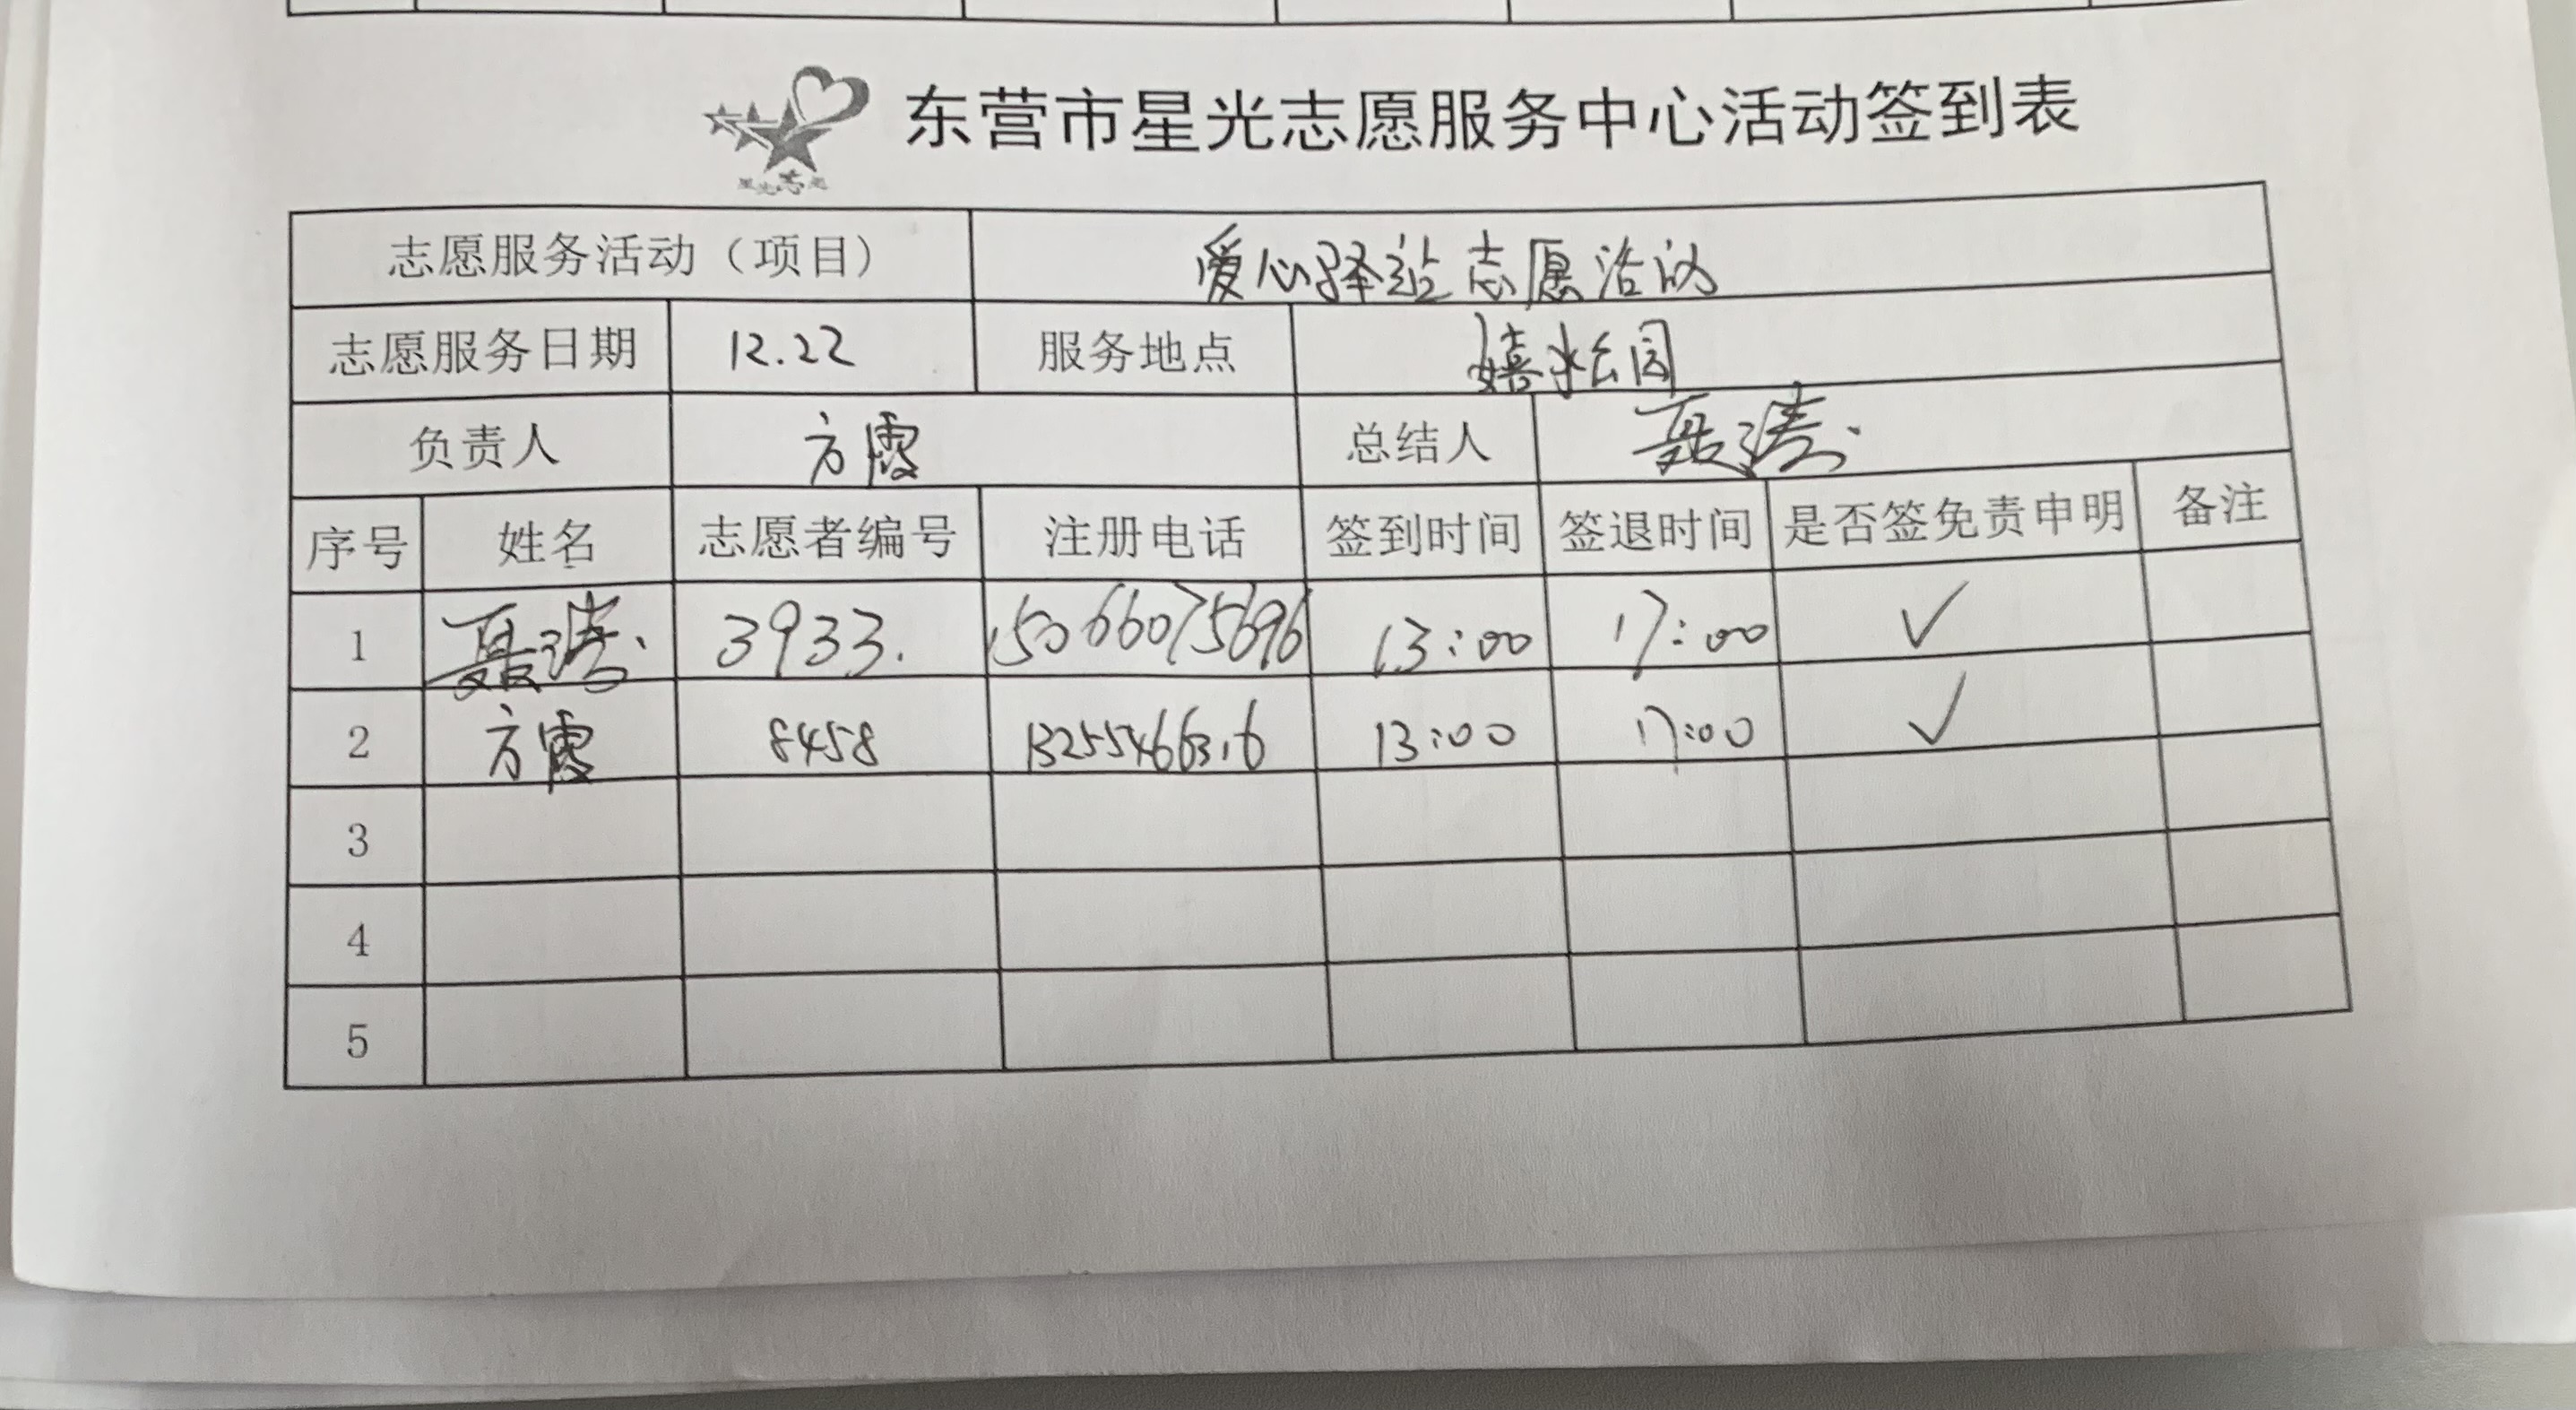 东营市星光志愿服务中心活动签到表
星光志愿
志愿服务活动（项目） 爱心驿站志愿活动
志愿服务日期 12.22 服务地点 嬉水公园
负责人 方霞 总结人 聂涛
序号 姓名 志愿者编号 注册电话 签到时间 签退时间 是否签免责申明 备注
1 聂涛 3933. 15066075696 13:00 17:00 ✓
2 方霞 8458 13255466316 13:00 17:00 ✓
3
4
5